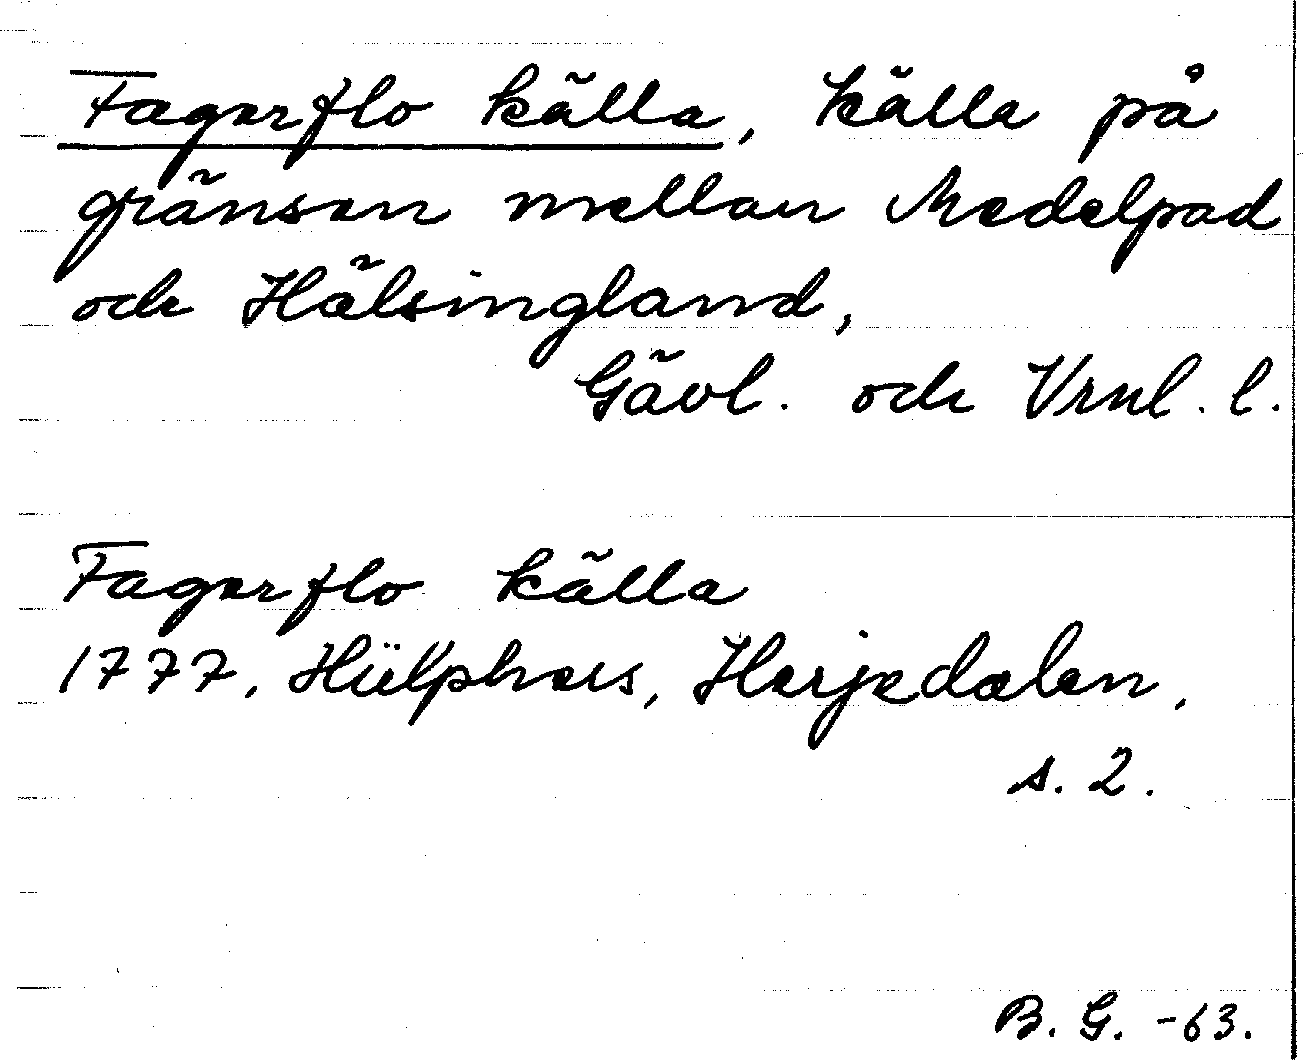 Fagerflo källa, källa på
gränsen mellan Medelpad
och Hälsingland,
Gävl. och Vrnl. l.
Fagerflo källa
1777, Hülphers, Herjedalen,
s. 2.
B. G. -63.